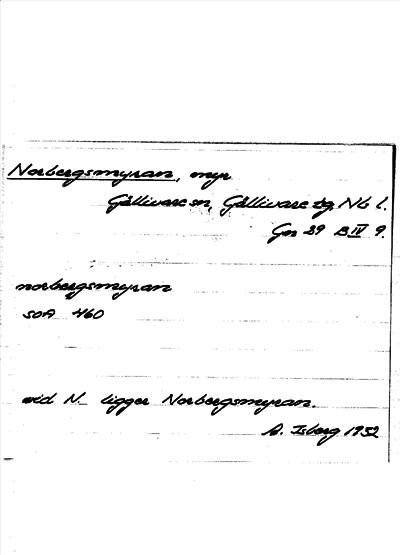 Norbergsmyran, myr
Gällivare sn, Gällivare tg. Nb l.
Gn 29 B IV 9.
norbergsmyran
SOA 460
vid N. ligger Norbergsmyran.
A. Isberg 1932